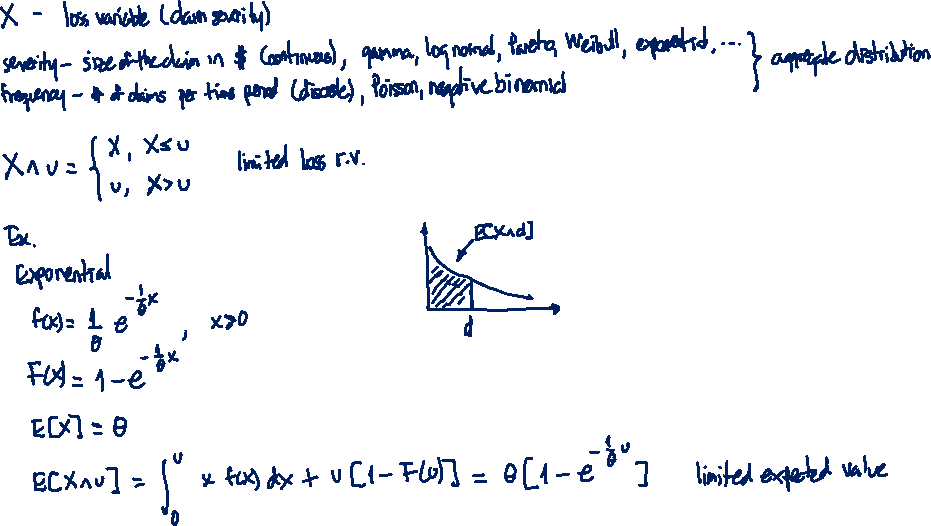 X - loss variable (claim severity)
severity - size of the claim in $ (continuous), gamma, lognormal, Pareto, Weibull, exponential, ... } aggregate distribution
frequency - # of claims per time period (discrete), Poisson, negative binomial
X ∧ u = { X, X ≤ u
u, X > u
limited loss r.v.
Ex.
Exponential
E[X∧d]
d
f(x) = 1/θ e^(-1/θ x), x > 0
F(x) = 1 - e^(-1/θ x)
E[X] = θ
E[X∧u] = ∫_0^u x f(x) dx + u [1 - F(u)] = θ [1 - e^(-1/θ u)] limited expected value